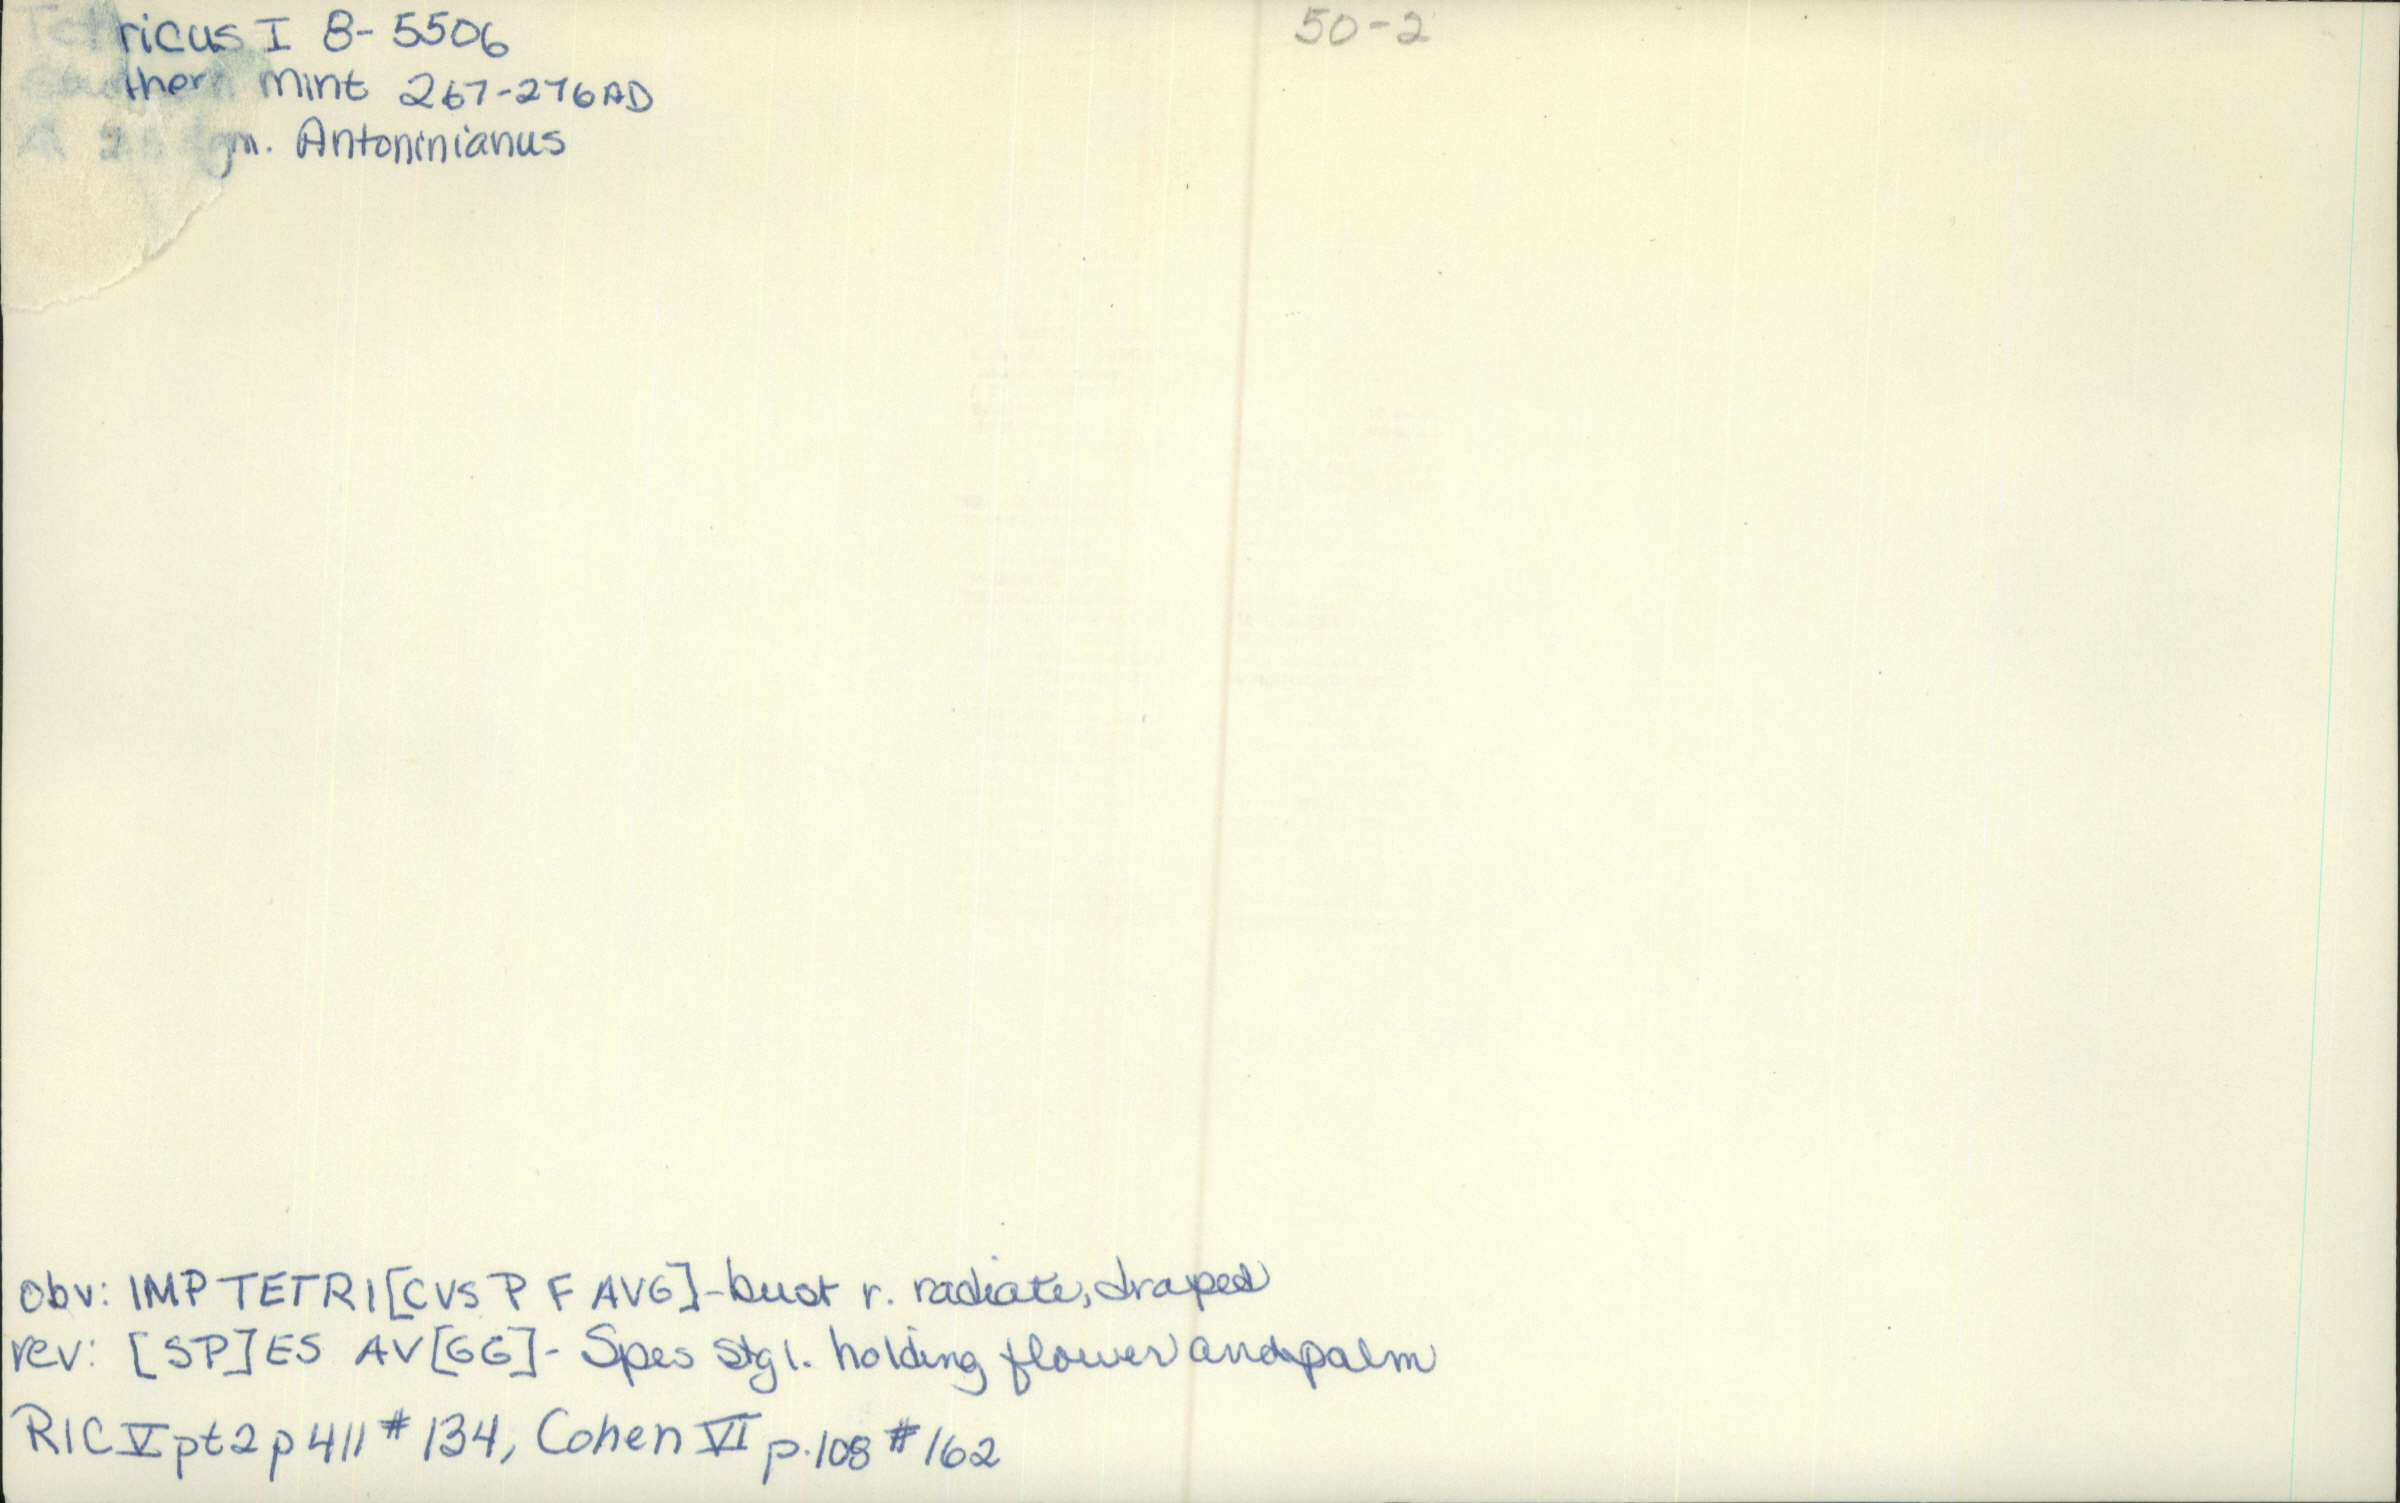 Tetricus I B-5506
50-2
Southern Mint 267-276AD
gm. Antoninianus
obv: IMP TETRI[CVS P F AVG]-bust r. radiate, draped
rev: [SP]ES AV[GG]- Spes stg l. holding flower and palm
RIC V pt2 p411 #134, Cohen VI p.108 #162